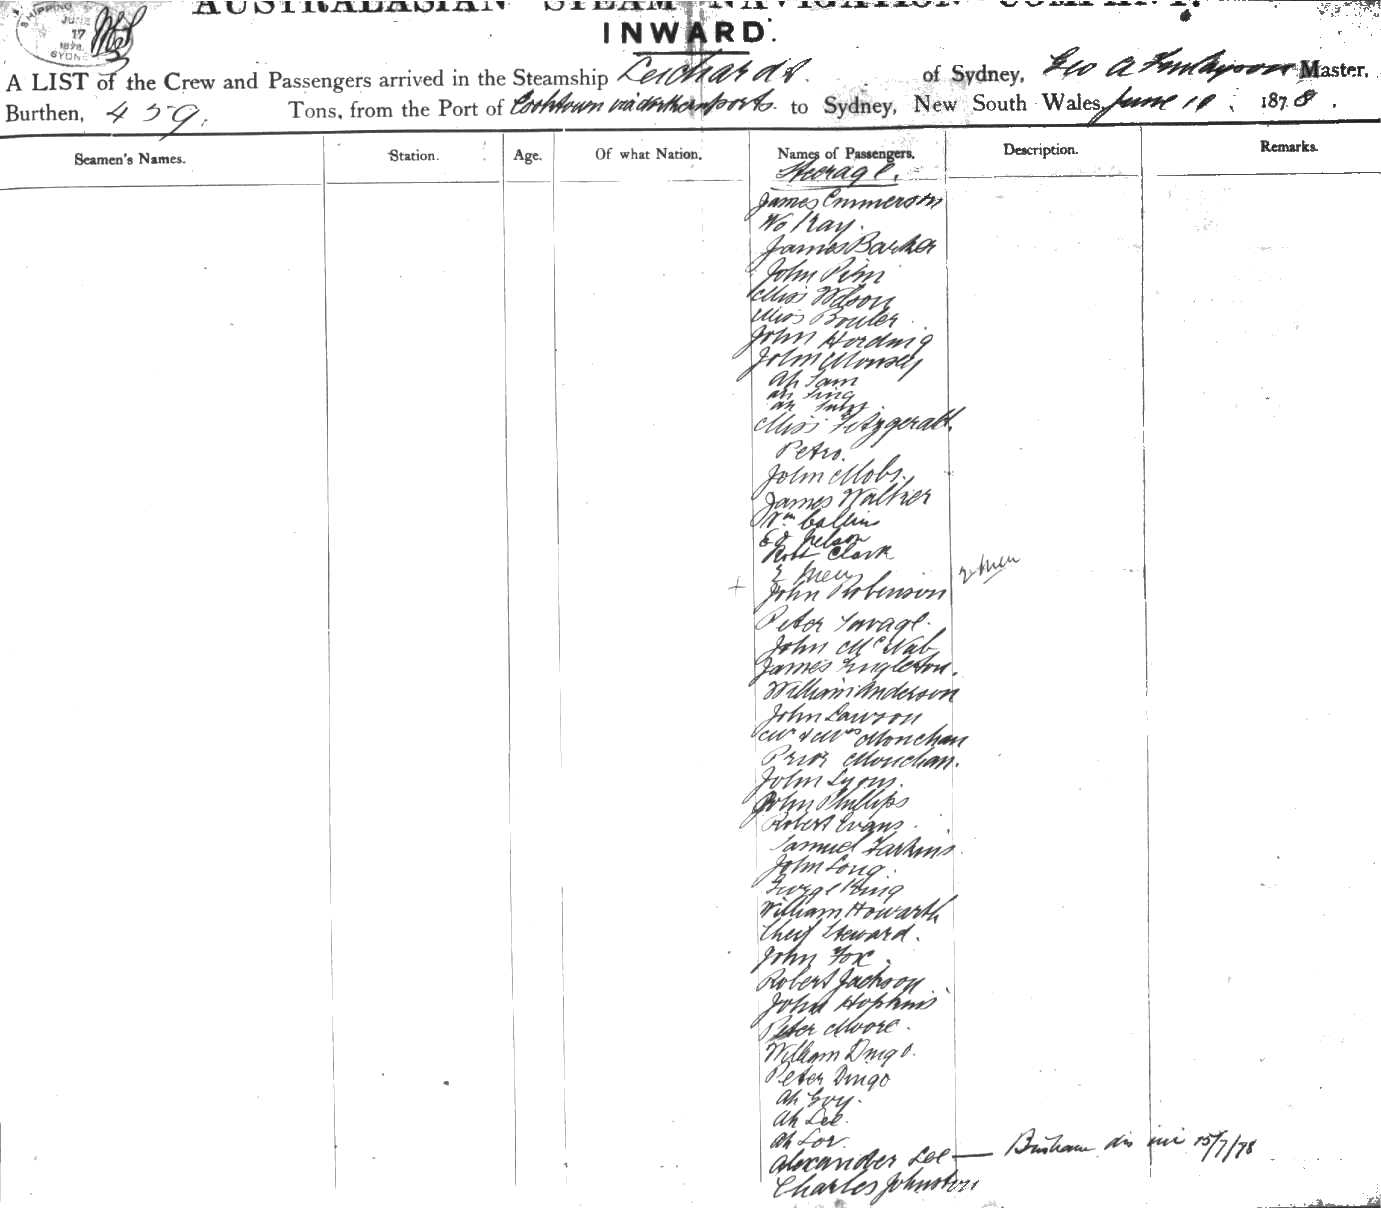 AUSTRALASIAN STEAM NAVIGATION COMPANY.
SHIPPING
JUNE
17
1878
SYDNEY
INWARD.
A LIST of the Crew and Passengers arrived in the Steamship Leichardt. of Sydney, Geo A Finlayson Master,
Burthen, 459. Tons, from the Port of Cooktown via northern ports. to Sydney, New South Wales, June 10, 1878.
Seamen's Names. Station. Age. Of what Nation. Names of Passengers. Description. Remarks.
Steerage.
James Emmerson
Wo Kay.
James Barker
John Pirn
Miss Wilson
Miss Bouler
John Hording
John Mousey
Ah Sam
Ah Sing
Ah
Miss Fitzgerald.
Petro.
John Mobs.
James Walker
Wm Collins
Ed Nelson
Robt Clark
2 Men 2 Men
John Robinson
Peter Savage.
John McNab
James Singleton.
William Anderson
John Lawson
Mr & Mrs Monchan
Prior Monchan.
John Lyons.
John Phillips
Robert Evans
Samuel Larkins
John Long.
George King
William Howarth
Chief Steward.
John Fox.
Robert Jackson
John Hopkins
Peter Moore.
William Dingo.
Peter Dingo
Ah Goy.
Ah Lee.
Ah Lor
Alexander Lee — Brisbane dis 15/7/78
Charles Johnston